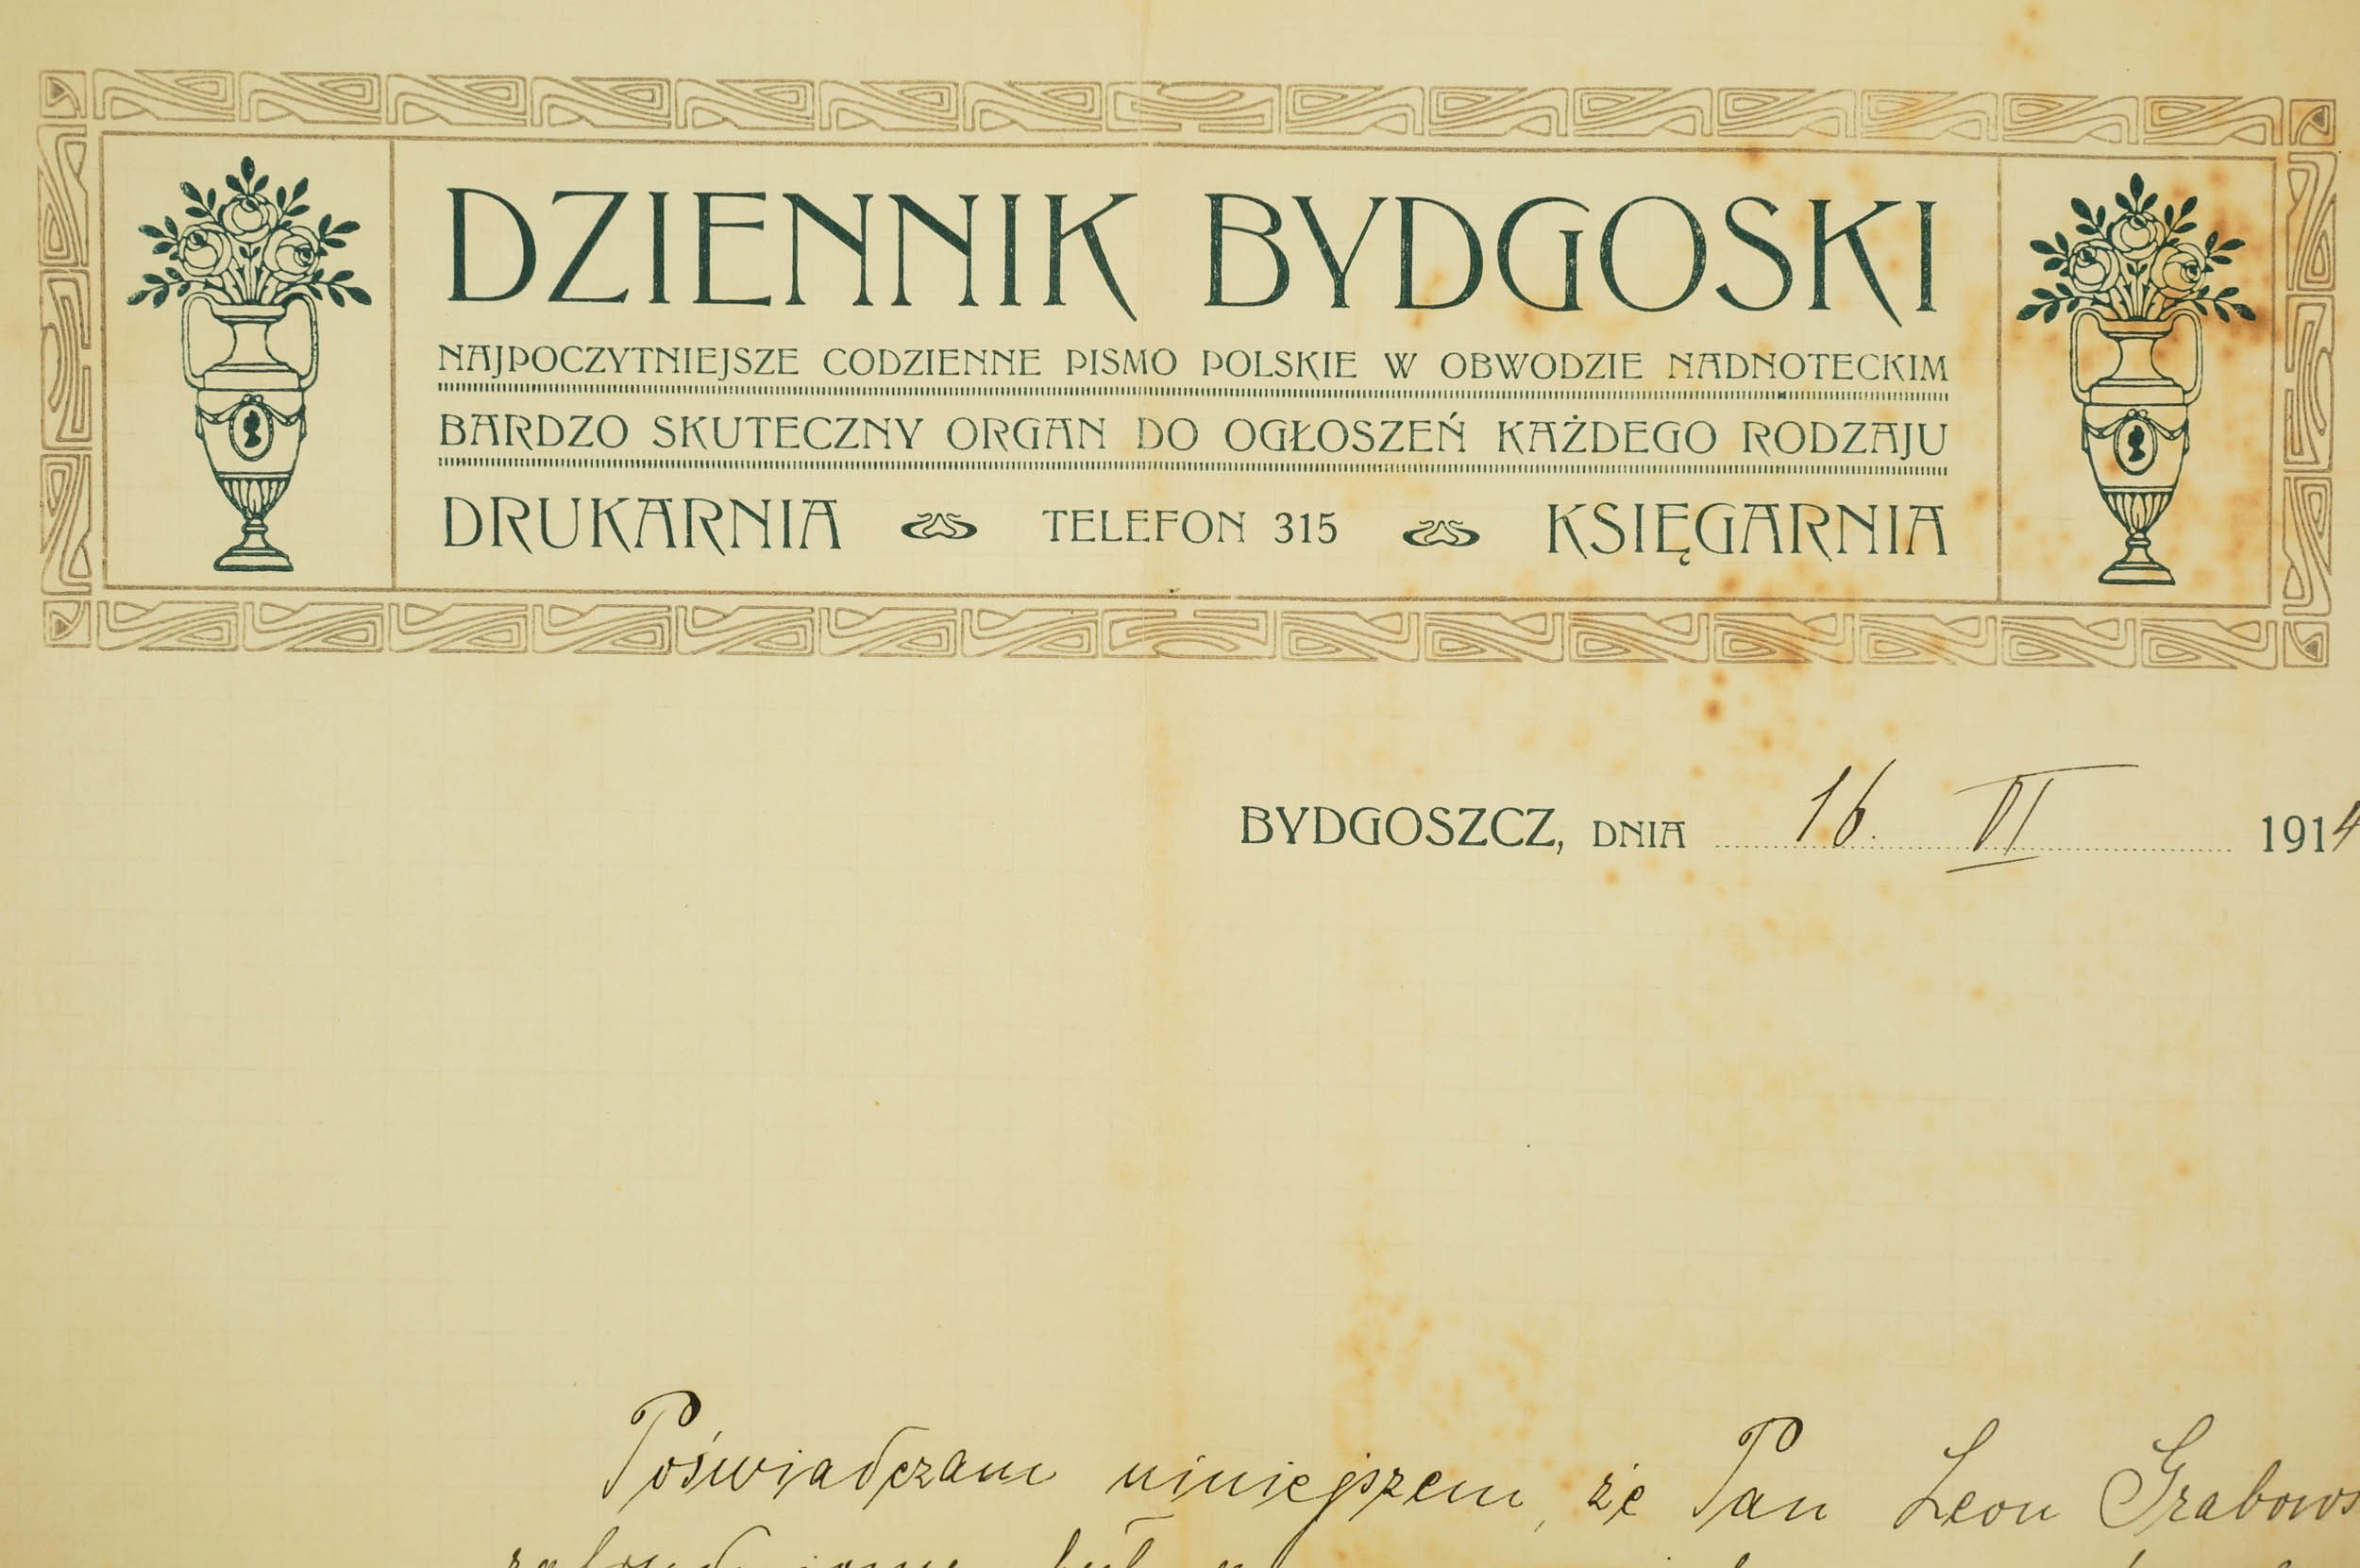 DZIENNIK BYDGOSKI
NAJPOCZYTNIEJSZE CODZIENNE PISMO POLSKIE W OBWODZIE NADNOTECKIM
BARDZO SKUTECZNY ORGAN DO OGŁOSZEŃ KAŻDEGO RODZAJU
DRUKARNIA TELEFON 315 KSIĘGARNIA
BYDGOSZCZ, DNIA 16. VI 1914
Poświadczam niniejszem, że Pan Leon Grabows